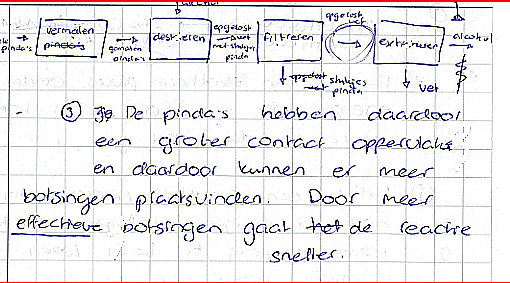 vermalen
pinda's
gemalen
pinda's
opgelost
vet
met stukjes
pinda
filtreren
opgelost
vet
alcohol
stukjes
pinda
vet
- ③ De pinda's hebben daardoor
een groter contact oppervlakte
en daardoor kunnen er meer
botsingen plaatsvinden. Door meer
effectieve botsingen gaat het de reactie
sneller.